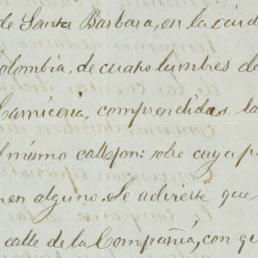 de Santa Barbara, en la ciud
Colombia, de cuatro lumbres de
Carniceria, comprendidas la
l mismo callejon: sobre cuya p
men alguno. Se advierte que
calle de la Compañia, con qu